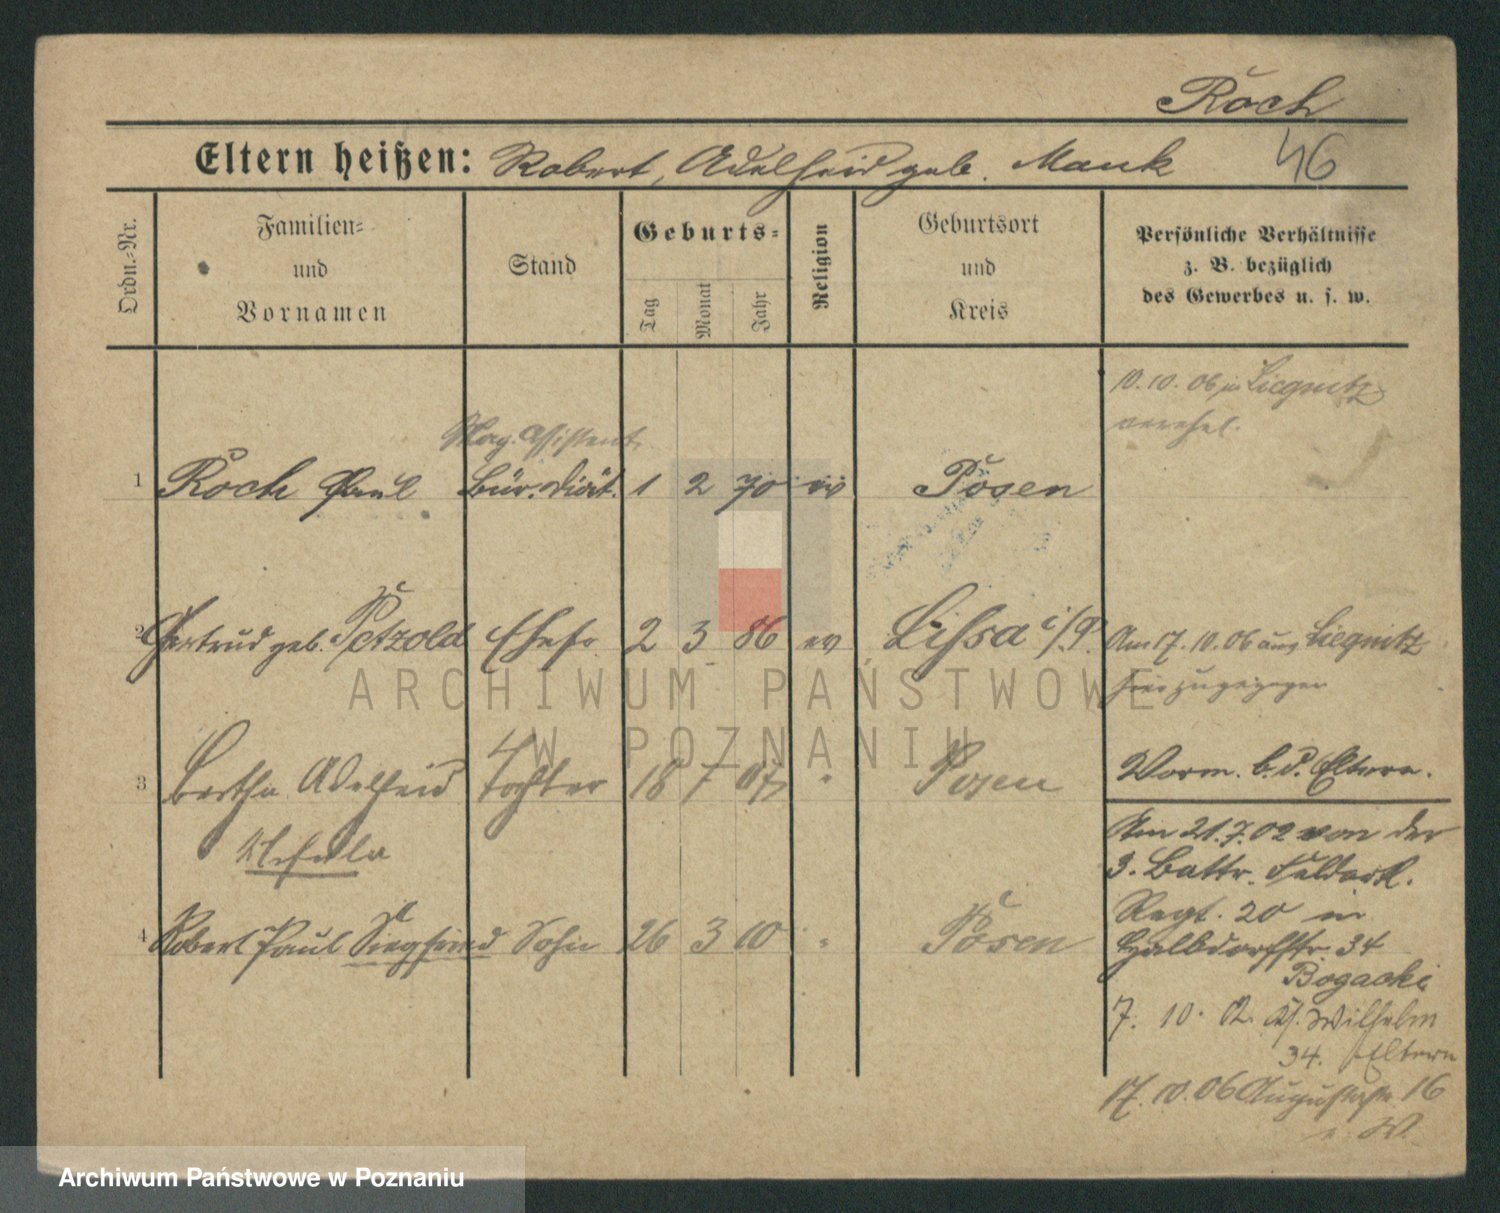 Roch
Eltern heißen: Robert, Adelheid geb. Mauk
46
Ordn.-Nr.
Familien-
und
Vornamen
Stand
Geburts-
Tag
Monat
Jahr
Religion
Geburtsort
und
Kreis
Persönliche Verhältnisse
z. B. bezüglich
des Gewerbes u. s. w.
10. 10. 06 in Liegnitz
verehel.
Mag. Assistent
1 Roch Paul Bür. Diät. 1 2 70 ev Posen
2 Gertrud geb. Petzold Ehefr 2 3 86 ev Lissa i/P. Am 17. 10. 06 aus Liegnitz
hier zugezogen
3 Bertha Adelheid Tochter 18 7 07 " Posen
Ursula
4 Robert Paul Siegfried Sohn 26 3 10 " Posen
Vorm. b. d. Eltern.
Am 21.7.02 von der
3. Battr. Feldart.
Regt. 20 in
Halbdorfstr. 34
Bogacki
7. 10. 02. Wilhelm
34. Eltern
17. 10. 06 Augustastr 16
ARCHIWUM PAŃSTWOWE
W POZNANIU
Archiwum Państwowe w Poznaniu